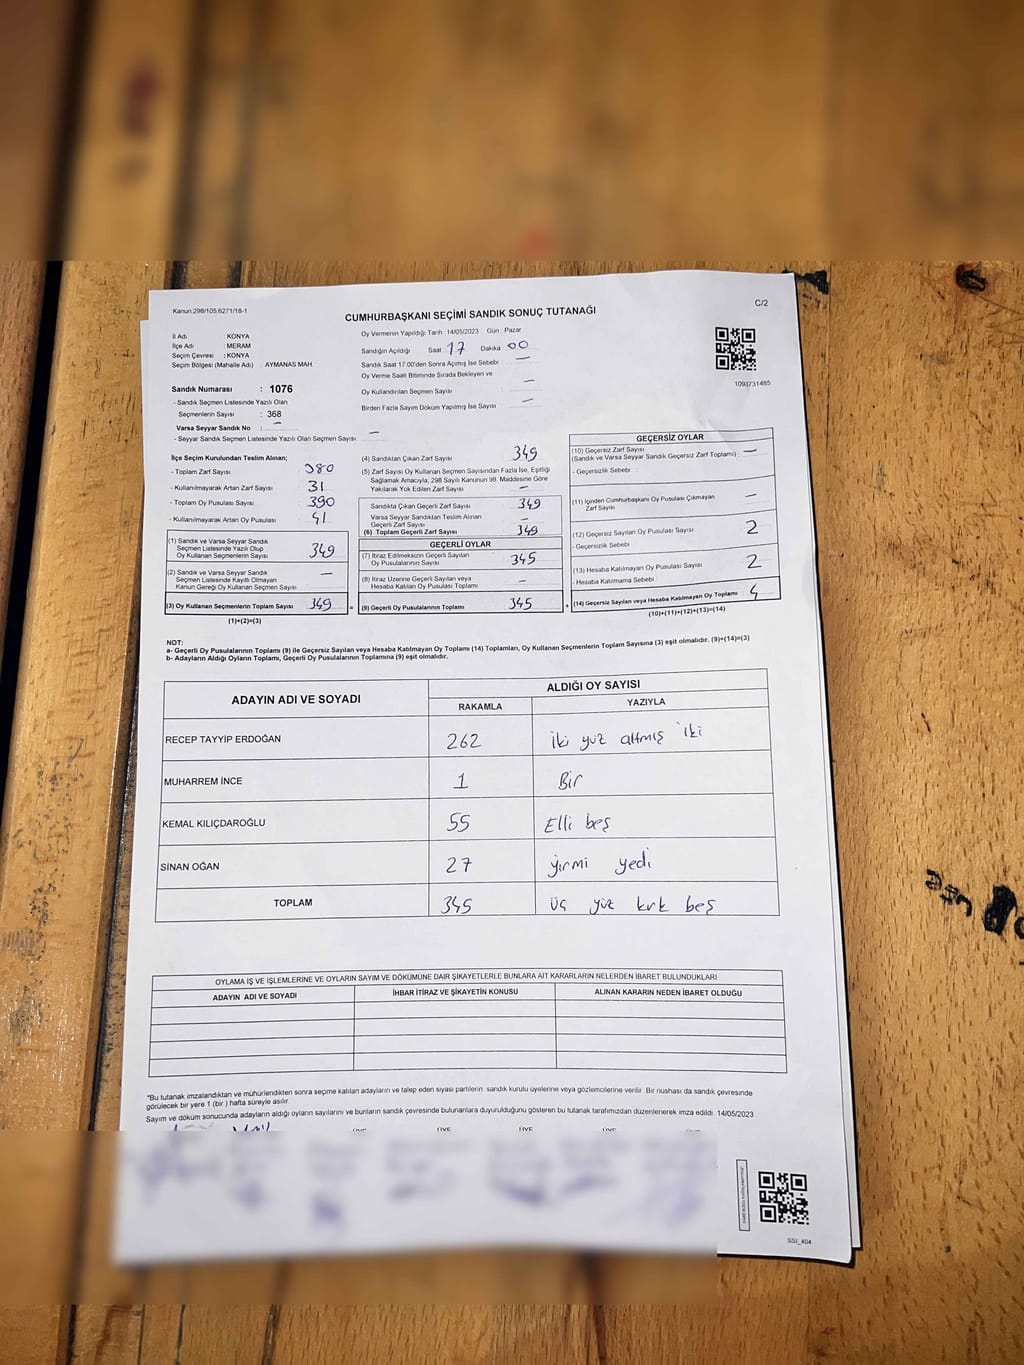 Kanun:298/105,6271/18-1
C/2
CUMHURBAŞKANI SEÇİMİ SANDIK SONUÇ TUTANAĞI
İl Adı : KONYA
İlçe Adı : MERAM
Seçim Çevresi : KONYA
Seçim Bölgesi (Mahalle Adı) : AYMANAS MAH
Sandık Numarası : 1076
- Sandık Seçmen Listesinde Yazılı Olan
Seçmenlerin Sayısı : 368
Varsa Seyyar Sandık No : —
- Seyyar Sandık Seçmen Listesinde Yazılı Olan Seçmen Sayısı: —
Oy Vermenin Yapıldığı Tarih : 14/05/2023 Gün : Pazar
Sandığın Açıldığı Saat 17 Dakika 00
Sandık Saat 17:00'den Sonra Açımış İse Sebebi : —
Oy Verme Saati Bitiminde Sırada Bekleyen ve
Oy Kullandırılan Seçmen Sayısı —
Birden Fazla Sayım Döküm Yapılmış İse Sayısı —
1093731465
İlçe Seçim Kurulundan Teslim Alınan;
- Toplam Zarf Sayısı 380
- Kullanılmayarak Artan Zarf Sayısı 31
- Toplam Oy Pusulası Sayısı 390
- Kullanılmayarak Artan Oy Pusulası 41
(1) Sandık ve Varsa Seyyar Sandık
Seçmen Listesinde Yazılı Olup
Oy Kullanan Seçmenlerin Sayısı 349
(2) Sandık ve Varsa Seyyar Sandık
Seçmen Listesinde Kayıtlı Olmayan
Kanun Gereği Oy Kullanan Seçmen Sayısı —
(3) Oy Kullanan Seçmenlerin Toplam Sayısı 349 =
(1)+(2)=(3)
(4) Sandıktan Çıkan Zarf Sayısı 349
(5) Zarf Sayısı Oy Kullanan Seçmen Sayısından Fazla İse, Eşitliği
Sağlamak Amacıyla, 298 Sayılı Kanunun 98. Maddesine Göre
Yakılarak Yok Edilen Zarf Sayısı —
Sandıkta Çıkan Geçerli Zarf Sayısı 349
Varsa Seyyar Sandıktan Teslim Alınan
Geçerli Zarf Sayısı —
(6) Toplam Geçerli Zarf Sayısı 349
GEÇERLİ OYLAR
(7) İtiraz Edilmeksizin Geçerli Sayılan
Oy Pusulasının Sayısı 345
(8) İtiraz Üzerine Geçerli Sayılan veya
Hesaba Katılan Oy Pusulası Toplamı —
(9) Geçerli Oy Pusulalarının Toplamı 345 +
GEÇERSİZ OYLAR
(10) Geçersiz Zarf Sayısı
(Sandık ve Varsa Seyyar Sandık Geçersiz Zarf Toplamı) —
- Geçersizlik Sebebi :
(11) İçinden Cumhurbaşkanı Oy Pusulası Çıkmayan
Zarf Sayısı —
(12) Geçersiz Sayılan Oy Pusulası Sayısı 2
- Geçersizlik Sebebi :
(13) Hesaba Katılmayan Oy Pusulası Sayısı 2
- Hesaba Katılmama Sebebi :
(14) Geçersiz Sayılan veya Hesaba Katılmayan Oy Toplamı 4
(10)+(11)+(12)+(13)=(14)
NOT:
a- Geçerli Oy Pusulalarının Toplamı (9) ile Geçersiz Sayılan veya Hesaba Katılmayan Oy Toplamı (14) Toplamları, Oy Kullanan Seçmenlerin Toplam Sayısına (3) eşit olmalıdır. (9)+(14)=(3)
b- Adayların Aldığı Oyların Toplamı, Geçerli Oy Pusulalarının Toplamına (9) eşit olmalıdır.
ADAYIN ADI VE SOYADI ALDIĞI OY SAYISI
RAKAMLA YAZIYLA
RECEP TAYYİP ERDOĞAN 262 iki yüz altmış iki
MUHARREM İNCE 1 Bir
KEMAL KILIÇDAROĞLU 55 Elli beş
SİNAN OĞAN 27 yirmi yedi
TOPLAM 345 üç yüz kırk beş
OYLAMA İŞ VE İŞLEMLERİNE VE OYLARIN SAYIM VE DÖKÜMÜNE DAİR ŞİKAYETLERLE BUNLARA AİT KARARLARIN NELERDEN İBARET BULUNDUKLARI
ADAYIN ADI VE SOYADI İHBAR İTİRAZ VE ŞİKAYETİN KONUSU ALINAN KARARIN NEDEN İBARET OLDUĞU
"Bu tutanak imzalandıktan ve mühürlendikten sonra seçime katılan adayların ve talep eden siyasi partilerin sandık kurulu üyelerine veya gözlemcilerine verilir. Bir nüshası da sandık çevresinde
görülecek bir yere 1 (bir ) hafta süreyle asılır.
Sayım ve döküm sonucunda adayların aldığı oyların sayılarını ve bunların sandık çevresinde bulunanlara duyurulduğunu gösteren bu tutanak tarafımızdan düzenlenerek imza edildi. 14/05/2023
ÜYE ÜYE ÜYE ÜYE
SSI_404